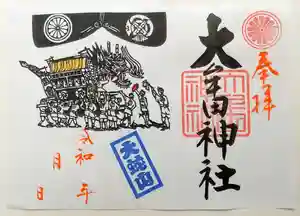 奉拝
大牟田神社
大蛇山
令和　年
月　日